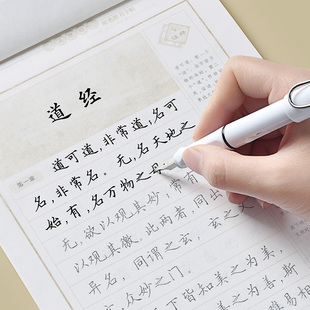 道经
第一章
道可道，非常道，名可
名，非常名。无，名天地之
始，有，名万物之母。
无，欲以观其妙，常有
以观其徼。此两者，同出
异名，同谓之玄，玄之
众妙之门。
下皆知美之为美，
之为善，斯
难易相